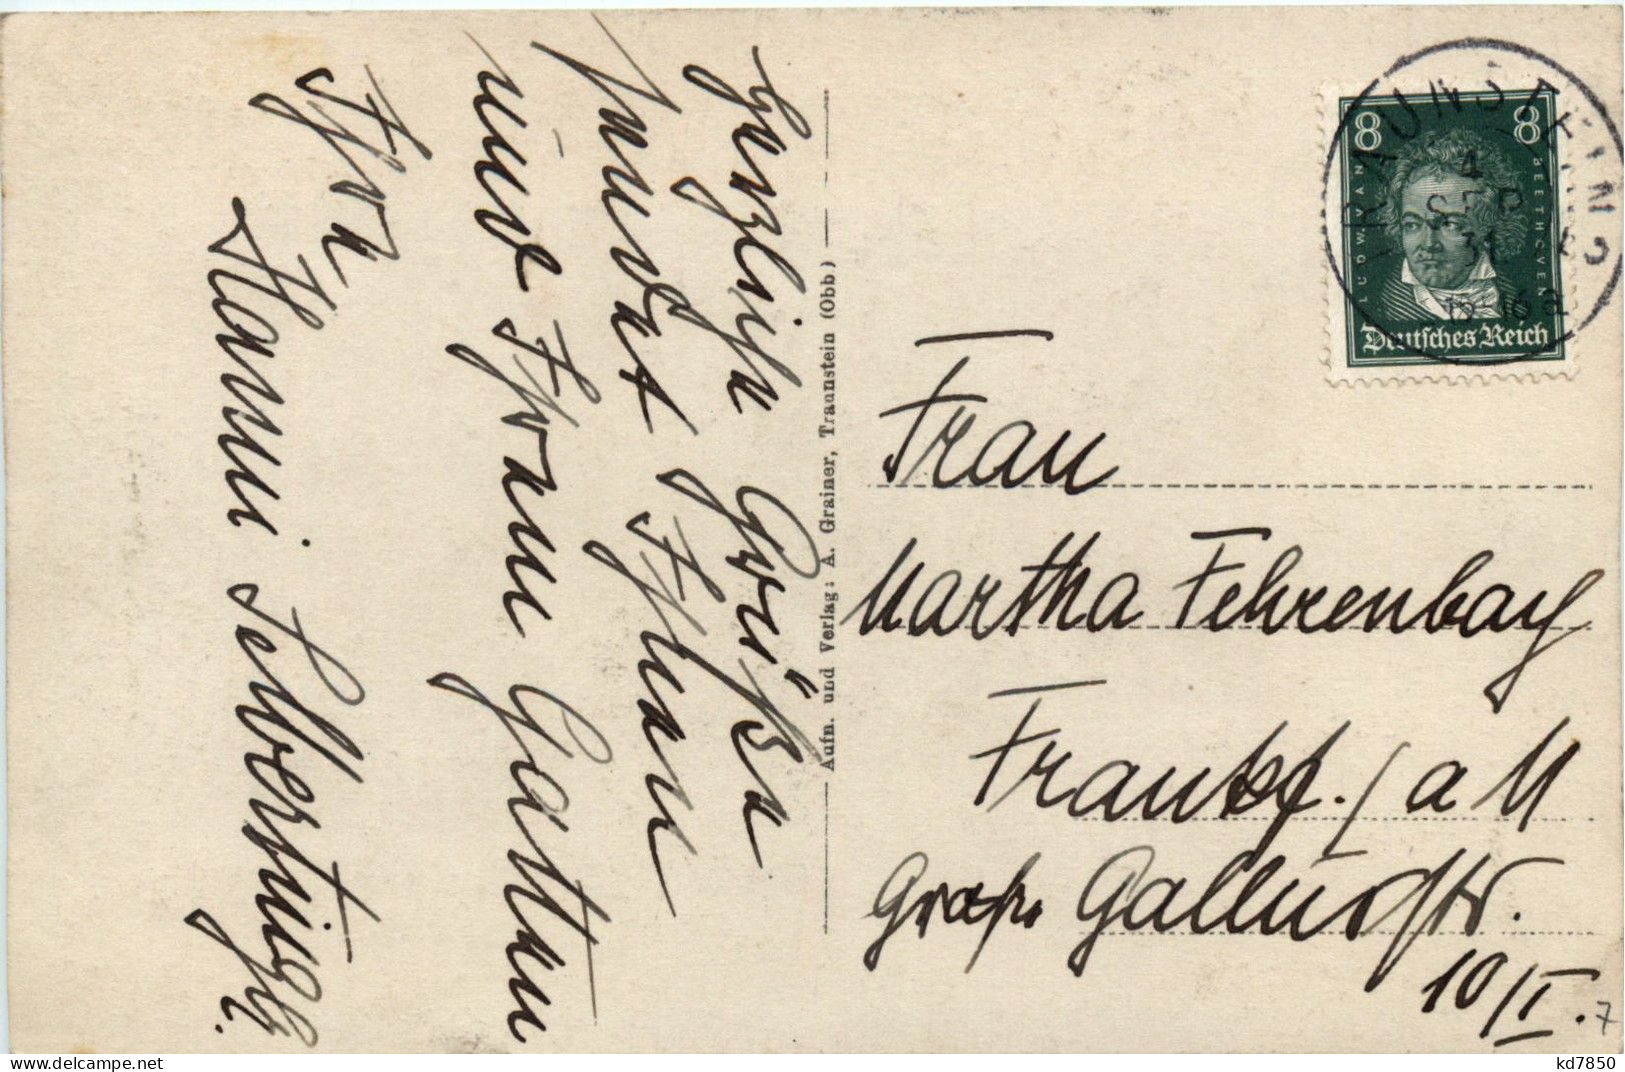 Herzliche Grüße
sendet Ihnen
und Ihrem Gatten
Ihre
Hanni Selbertinger.
Aufn. und Verlag: A. Grainer, Traunstein (Obb)
TRAUNSTEIN 2
4
SEP
31
8 8
LUDW. VAN BEETHOVEN
Deutsches Reich
Frau
Martha Fehrenbay
Frankf./a M
Große Gallusstr.
10/I.
7
kd7850